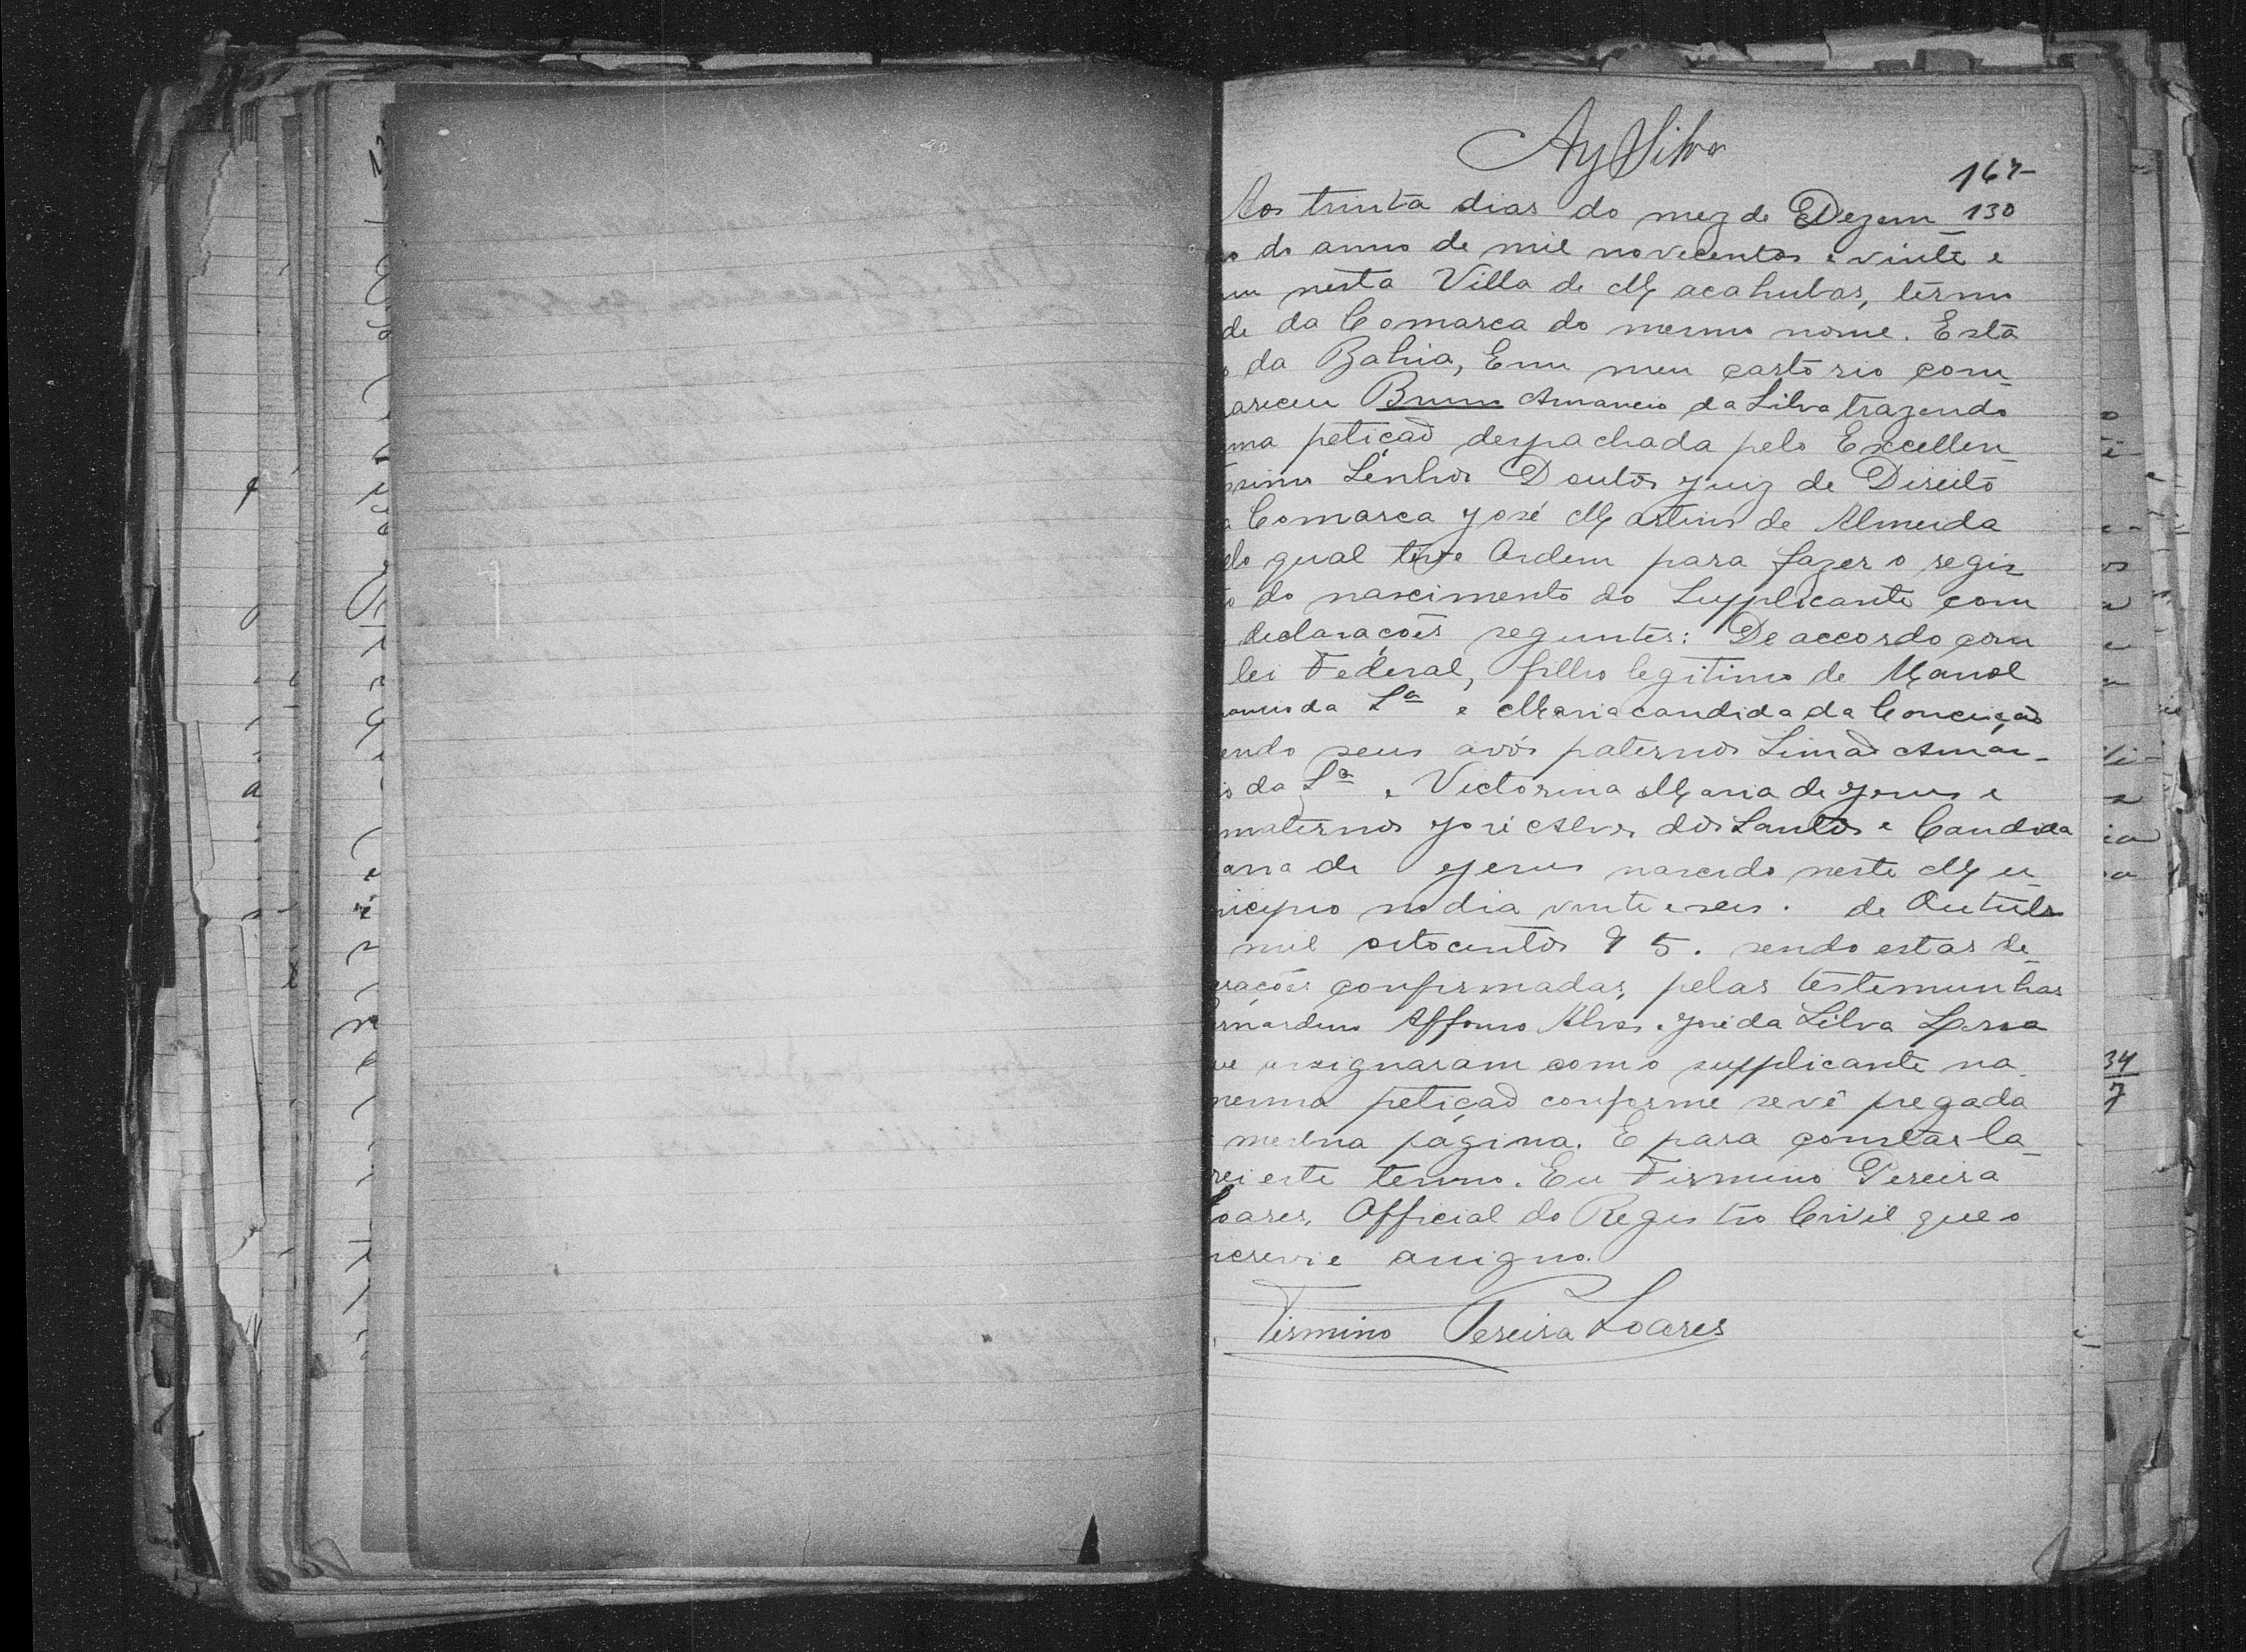 AySilva
167
Aos trinta dias do mez de Dezem_ 130
o do anno de mil novecentos e vinte e
um nesta Villa de Macahubas, termo
de da Comarca do mesmo nome. Esta
o da Bahia, Em meu cartorio com_
areceu Bruno Amancio da Silva trazendo
ma petiçaõ despachada pelo Excellen_
ssimo Senhor Doutor Juiz de Direito
a Comarca José Martins de Almeida
elo qual tive Ordem para fazer o regis
to do nascimento do Supplicante com
declarações seguntes: De accordo com
lei Federal, filho legitimo de Manoel
da Sª e Maria candida da Conceição
endo seus avós paternos Simaõ Aman_
io da Sª e Victorina Maria de Jesus e
maternos José Alves dos Santos e Candida
aria de Jesus nascido neste Mu_
nicipio no dia vinte e seis. de Outubr
mil oitocentos 95. sendo estas de_
arações confirmadas, pelas testemunhas
ernardino Affonso Alves e José da Silva
ue assignaram com o supplicante na
mesma petiçaõ conforme se vê pregada
mesma página. E para constar la_
rei este termo. Eu Firmino Pereira
Soares, Official do Registro Civil que o
screvi e assigno.
Firmino Pereira Soares
34
7